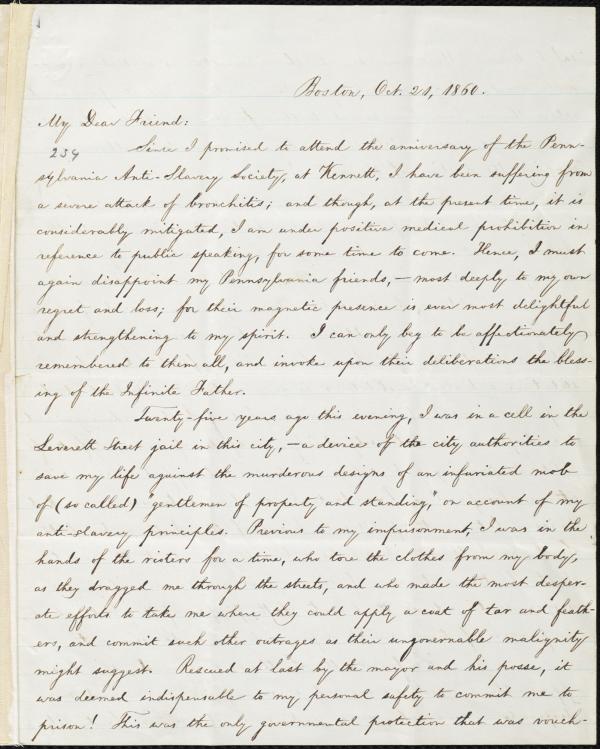 Boston, Oct. 21, 1860.
My Dear Friend:
234
Since I promised to attend the anniversary of the Penn-
sylvania Anti-Slavery Society, at Kennett, I have been suffering from
a severe attack of bronchitis; and though, at the present time, it is
considerably mitigated, I am under positive medical prohibition in
reference to public speaking, for some time to come. Hence, I must
again disappoint my Pennsylvania friends, — most deeply to my own
regret and loss; for their magnetic presence is ever most delightful
and strengthening to my spirit. I can only beg to be affectionately
remembered to them all, and invoke upon their deliberations the bless-
ing of the Infinite Father.
Twenty-five years ago this evening, I was in a cell in the
Leverett Street jail in this city, — a device of the city authorities to
save my life against the murderous designs of an infuriated mob
of (so called) "gentlemen of property and standing," on account of my
anti-slavery principles. Previous to my imprisonment, I was in the
hands of the rioters for a time, who tore the clothes from my body,
as they dragged me through the streets, and who made the most desper-
ate efforts to take me where they could apply a coat of tar and feath-
ers, and commit such other outrages as their ungovernable malignity
might suggest. Rescued at last by the mayor and his posse, it
was deemed indispensable to my personal safety to commit me to
prison! This was the only governmental protection that was vouch-